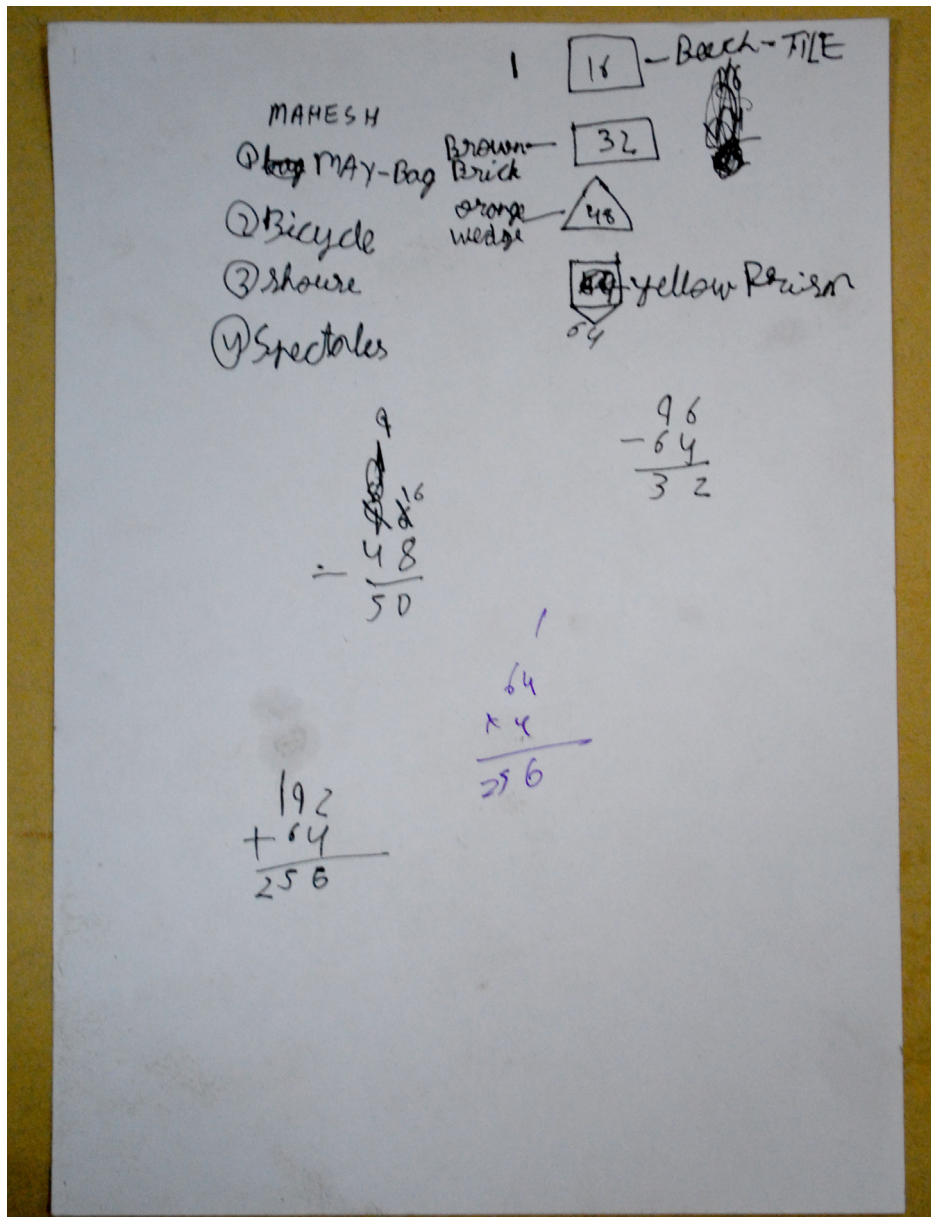 1 16 - Beech - TILE
MAHESH
① MAY-Bag
② Bicycle
③ Shouse
④ Spectales
Brown Brick 32
orange wedge 48
yellow Prism
64
96
- 64
3 2
9
16
48
-
50
1
64
x 4
256
192
+ 64
256